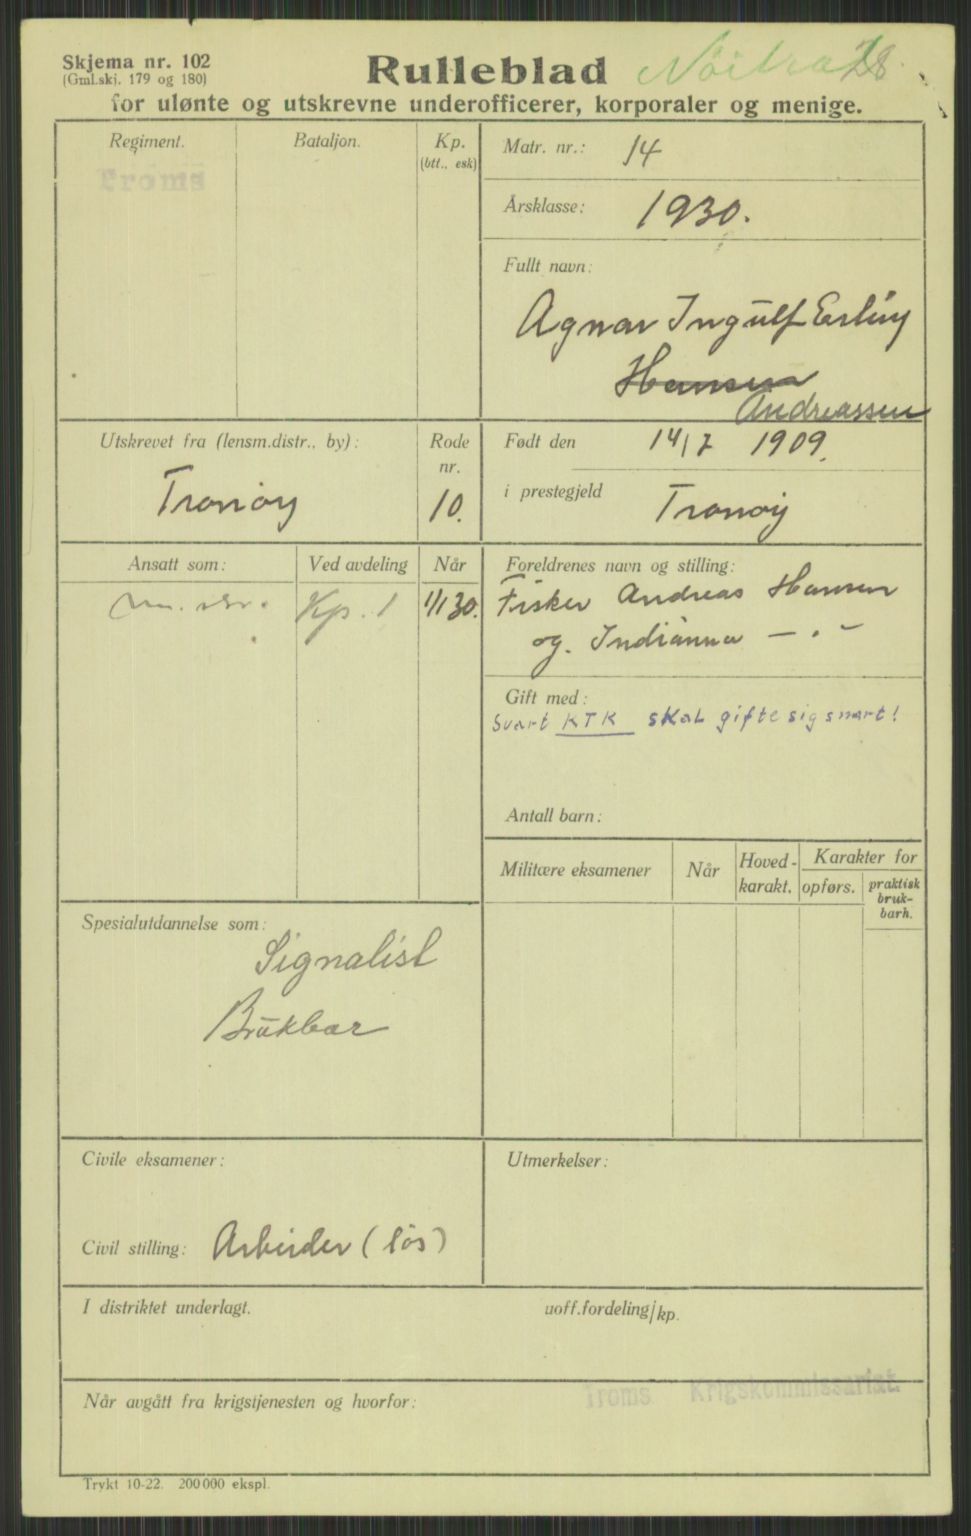 Skjema nr. 102
(Gml.skj. 179 og 180)
Rulleblad
28
for ulønte og utskrevne underofficerer, korporaler og menige.
Regiment.
Bataljon.
Kp.
(btt., esk)
Troms
Matr. nr.: 14
Årsklasse: 1930.
Fullt navn:
Agnar Ingulf Erling
Hansen
Andreassen
Utskrevet fra (lensm.distr., by):
Tranöy
Rode
nr.
10.
Født den 14/7 1909.
i prestegjeld Tranöy
Ansatt som:
Ved avdeling
Når
Kp. 1
1/1 30.
Foreldrenes navn og stilling:
Fisker Andreas Hansen
og. Indianna — . —
Gift med:
Svart KTK skal gifte sig snart!
Antall barn:
Militære eksamener
Når
Hoved-
karakt.
Karakter for
opførs.
praktisk
bruk-
barh.
Spesialutdannelse som:
Signalist
Brukbar
Civile eksamener:
Civil stilling: Arbeider (lös)
Utmerkelser:
I distriktet underlagt.
uoff.fordeling/kp.
Når avgått fra krigstjenesten og hvorfor:
Troms Krigskommissariat.
Trykt 10-22. 200000 ekspl.